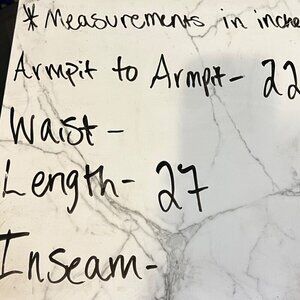 * Measurements in inche
Armpit to Armpit- 22
Waist-
Length- 27
Inseam-